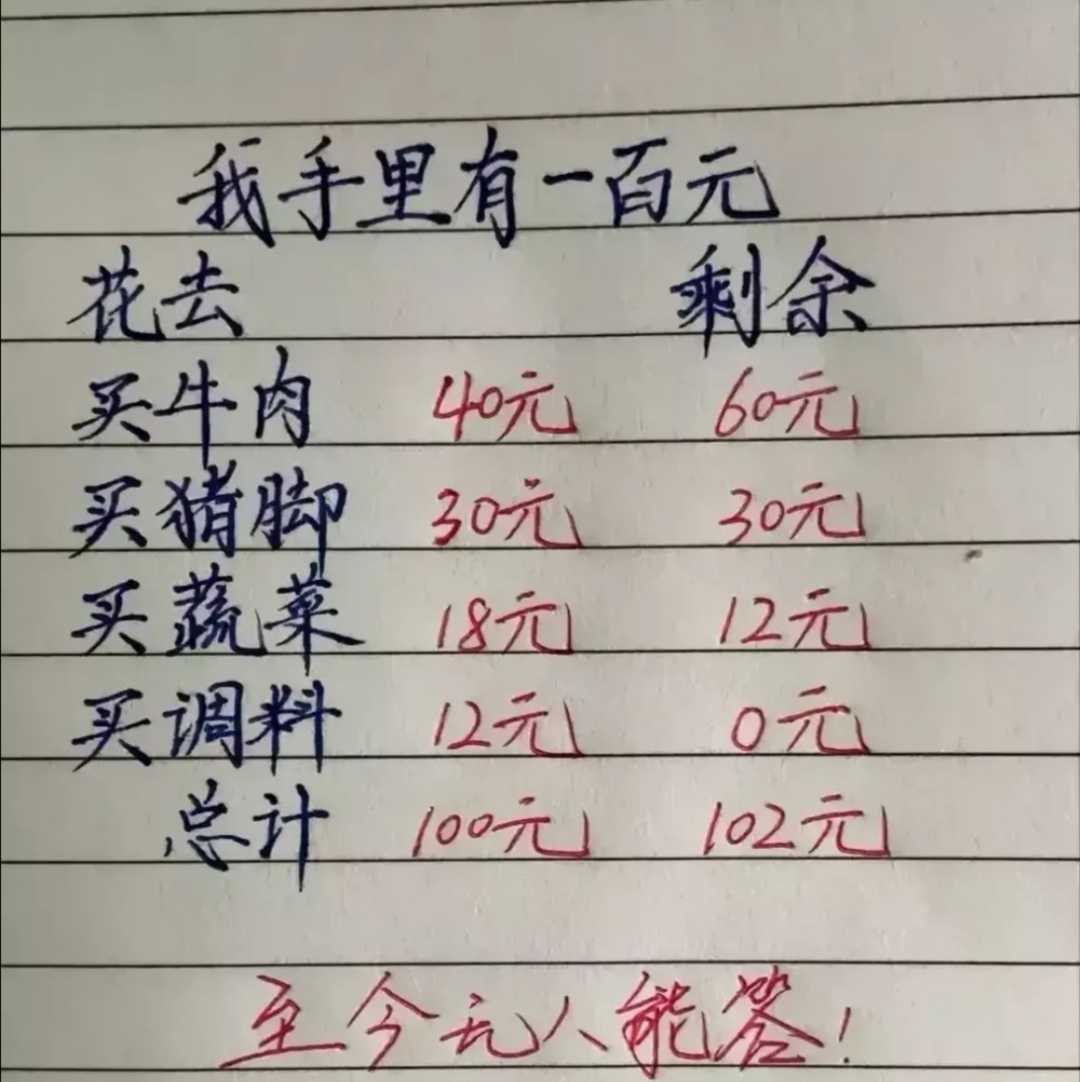 我手里有一百元
花去 剩余
买牛肉 40元 60元
买猪脚 30元 30元
买蔬菜 18元 12元
买调料 12元 0元
总计 100元 102元
至今无人能答！